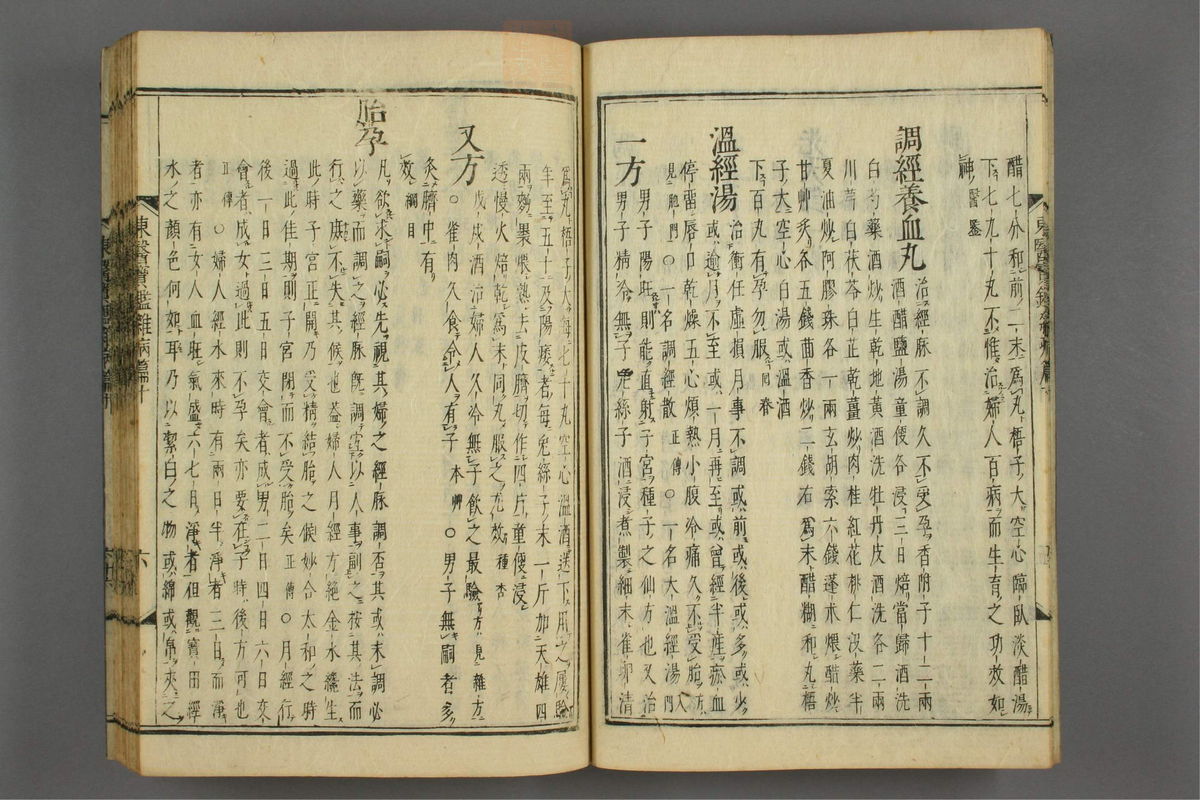 醋七分和前二末爲丸梧子大空心臨臥淡醋湯
下七九十丸不惟治婦人百病而生育之功效如
神醫鑒
調經養血丸 治經脉不調久不受孕香附子十二兩
酒醋鹽湯童便各浸三日焙當歸酒洗
白芍藥酒炒生乾地黃酒洗牡丹皮酒洗各二兩
川芎白茯苓白芷乾薑炒肉桂紅花桃仁沒藥半
夏油炒阿膠珠各一兩玄胡索六錢蓬朮煨醋炒
甘艸炙各五錢茴香炒二錢右爲末醋糊和丸梧
子大空心白湯或溫酒
下百丸有孕勿服回春
溫經湯 治衝任虛損月事不調或前或後或多或少
或逾月不至或一月再至或曾經半産瘀血
停留唇口乾燥五心煩熱小腹冷痛久不受胎方
見胞門○一名調經散正傳○一名大溫經湯入門
一方 男子陽旺則能直射子宮種子之仙方也又治
男子精冷無子兔絲子酒浸煮製細末雀卵清
爲丸梧子大每七十丸空心溫酒送下用之屢驗
年至五十及陽痿者每兔絲子末一斤加天雄四
兩麪裹煨熟去皮臍切作四片童便浸
透慢火焙乾爲末同丸服之尤效種杏
又方 戊戌酒治婦人久冷無子飲之最驗方見雜方
○雀肉久食令人有子本艸○男子無嗣者多
灸臍中有
效綱目
胎孕
凡欲求嗣必先視其婦之經脉調否其或未調必
以藥而調之經脉旣調宜以人事副之按其法而
行之庶不失其候也蓋婦人月經方絶金水纔生
此時子宮正開乃受精結胎之候妙合太和之時
過此佳期則子宮閉而不受胎矣正傳○月經行
後一日三日五日交會者成男二日四日六日交
會者成女過此則不孕矣亦要在子時後方可也
正傳○婦人經水來時有兩日半淨者三日而淨
者亦有女人血旺氣盛六七日淨者但觀寶田經
水之顔色何如耳乃以潔白之物或綿或帛夾之
東醫寶鑑雜病篇十
六